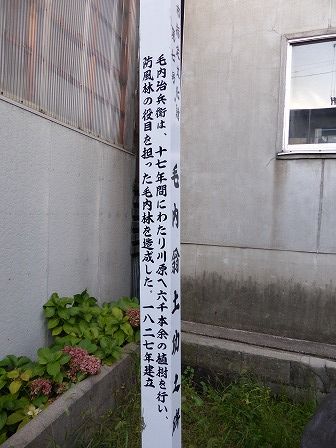 毛内翁土功之跡
毛内治兵衛は、十七年間にわたり川原へ六千本余の植樹を行い、
防風林の役目を担った毛内林を造成した。一八二七年建立